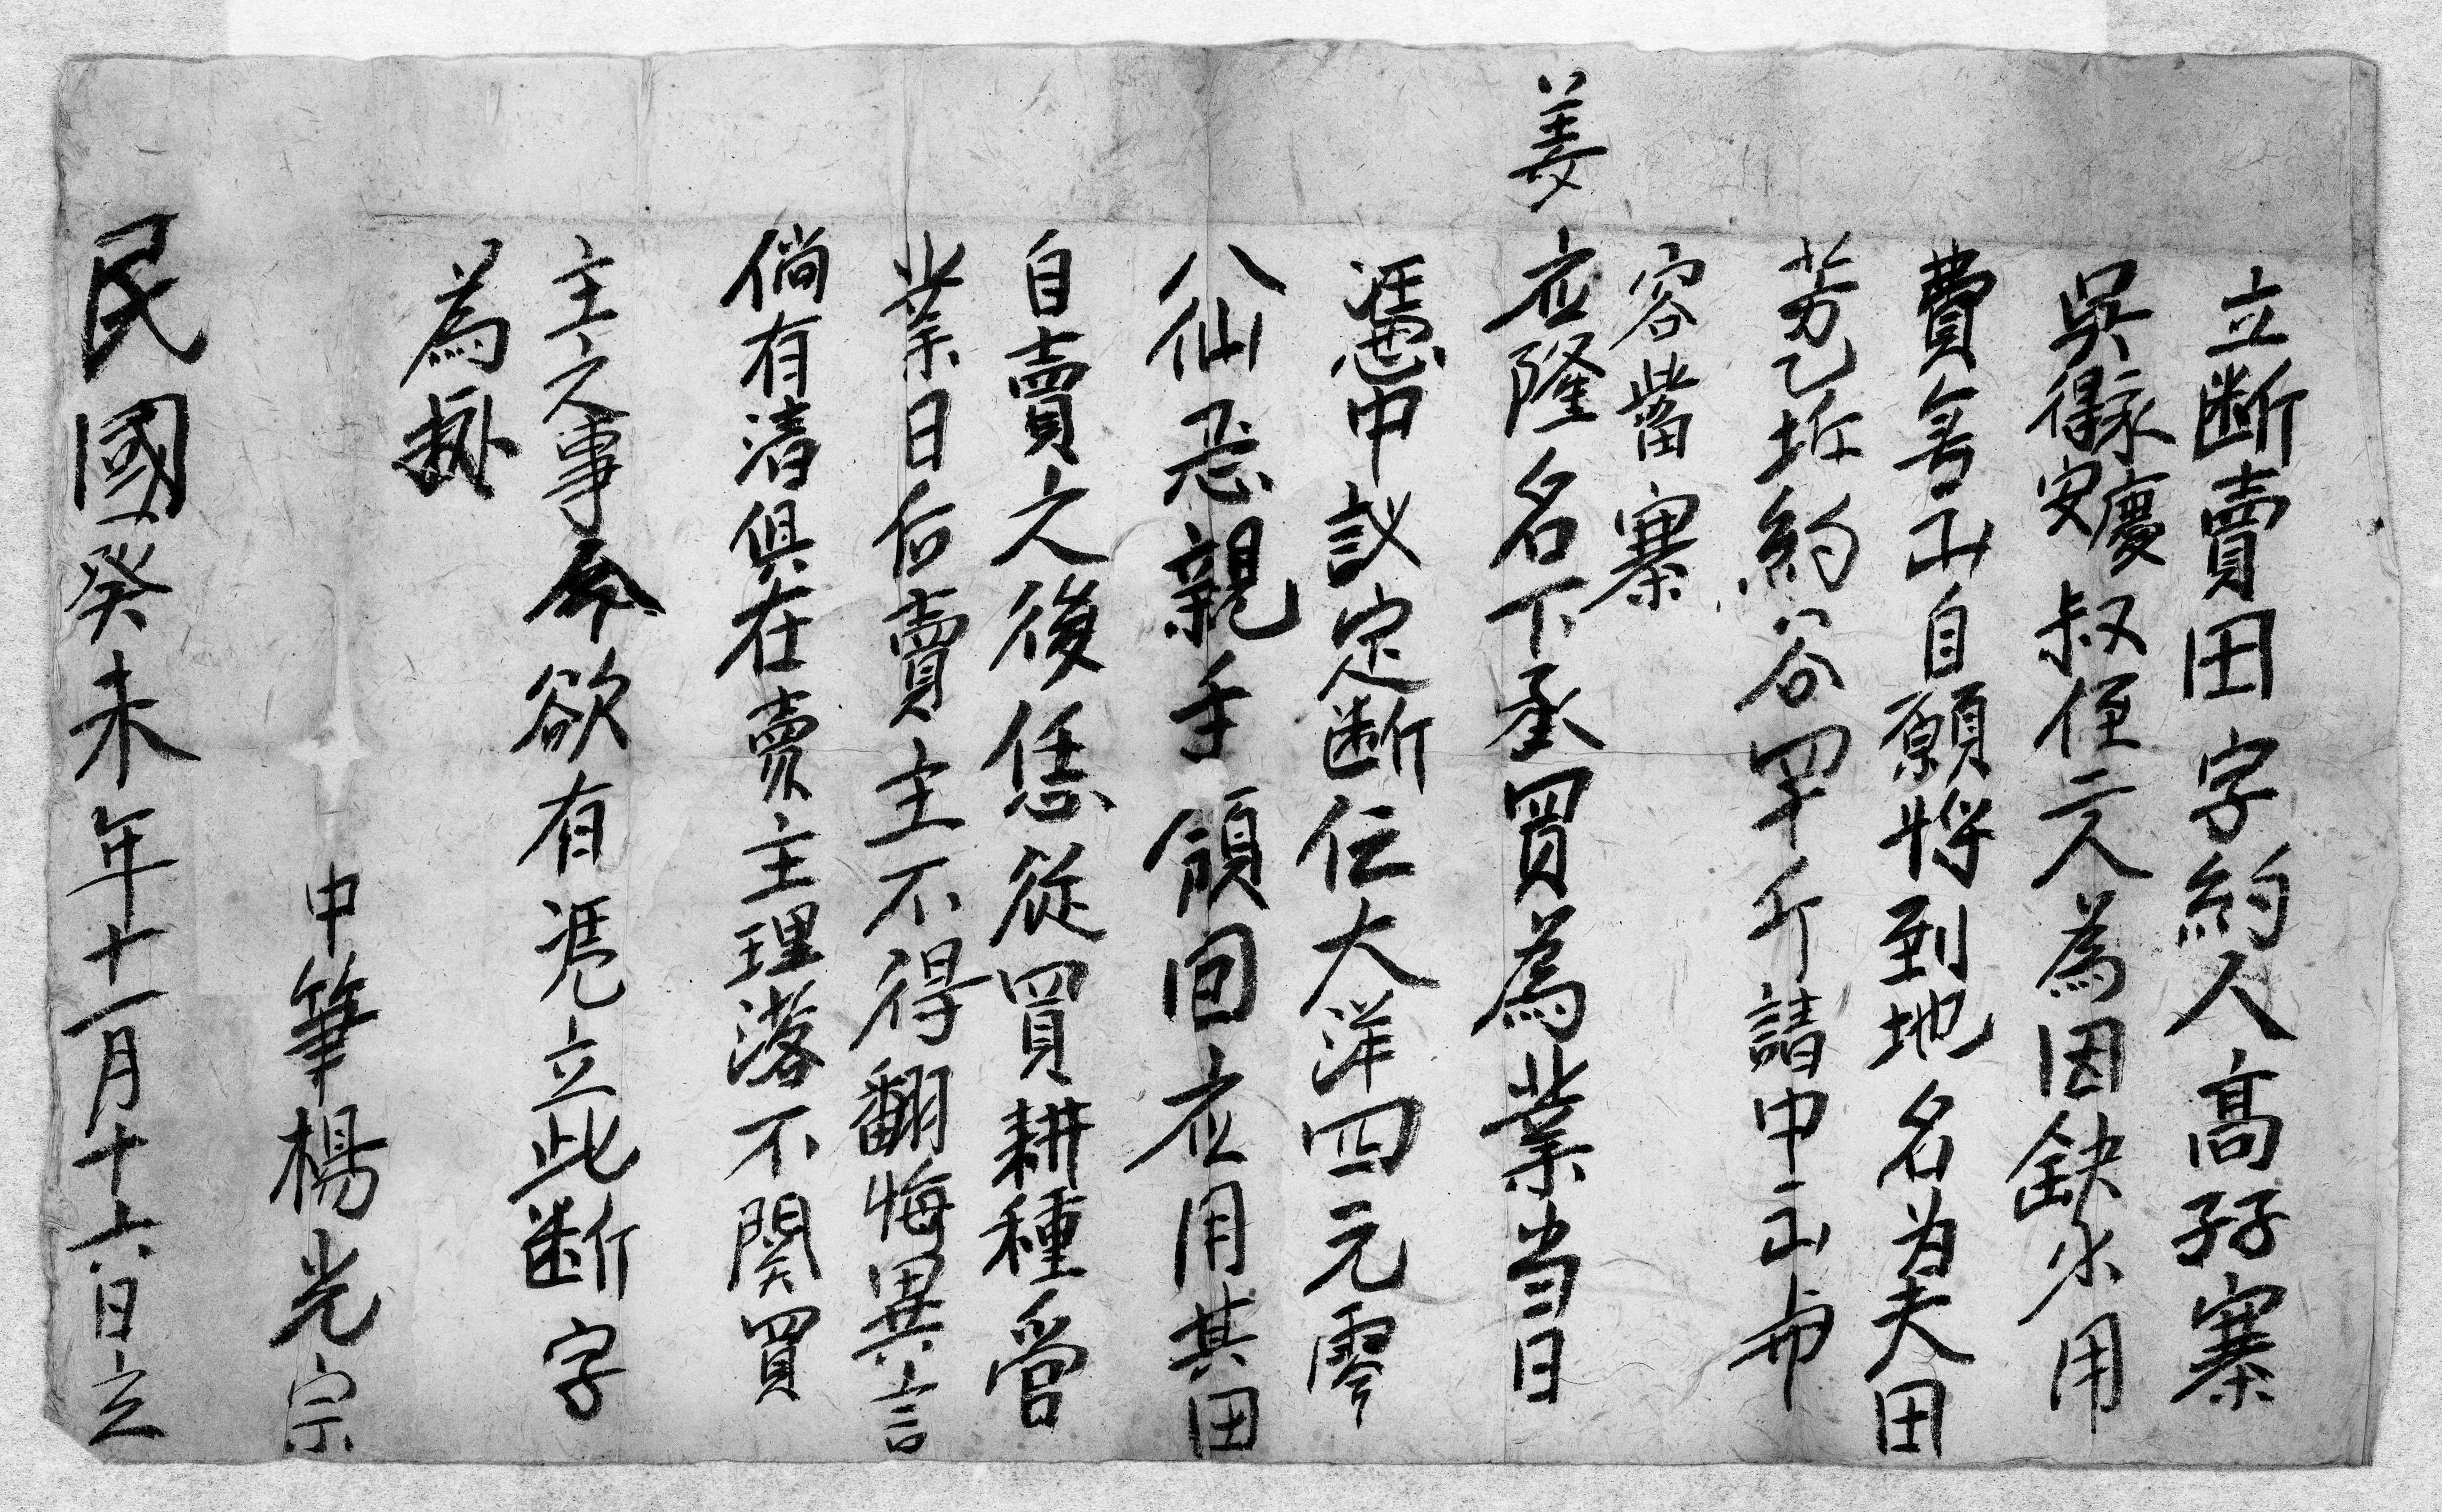 立断賣田字約人高孖寨
吳得禄安慶叔侄二人為因缺少用
費無出自願將到地名为夫田
芳乙坵約谷四十斤請中云卖
容嘴寨
姜应隆名下承買為業当日
憑中議定断價大洋四元零
八仙忍親手領回应用其田
自賣之後恁從買耕種管
業日后賣主不得翻悔異言
倘有清俱在賣主理落不関買
主之事今欲有凴立此断字
為據
中筆楊光宗
民國癸未年十一月十六日立